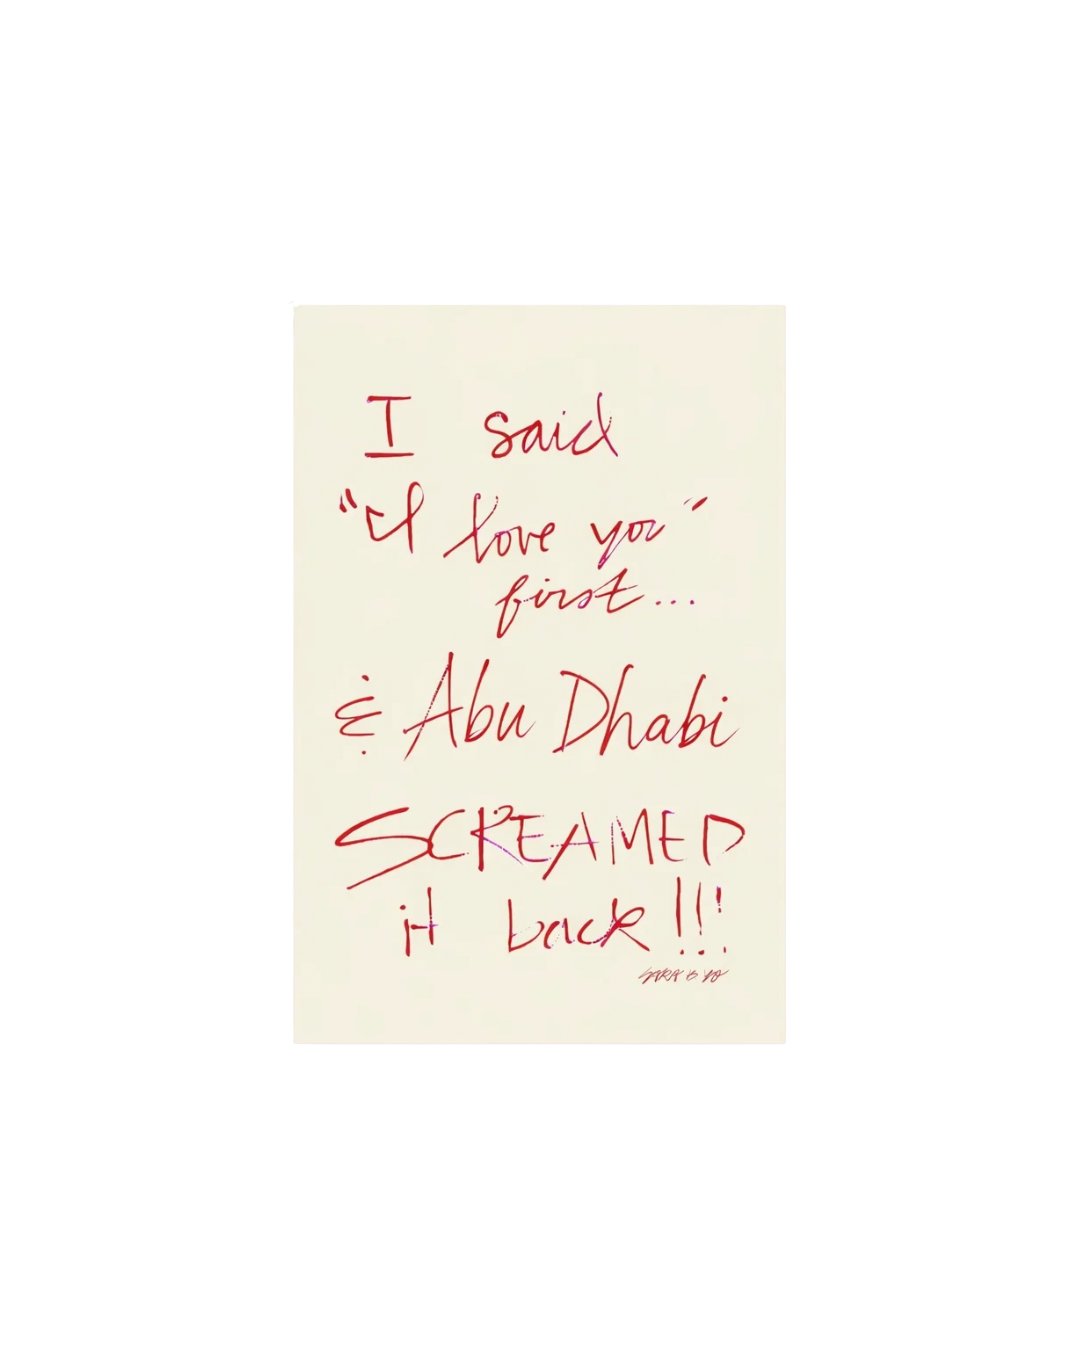 I said
"I love you"
first...
& Abu Dhabi
SCREAMED
it back!!!